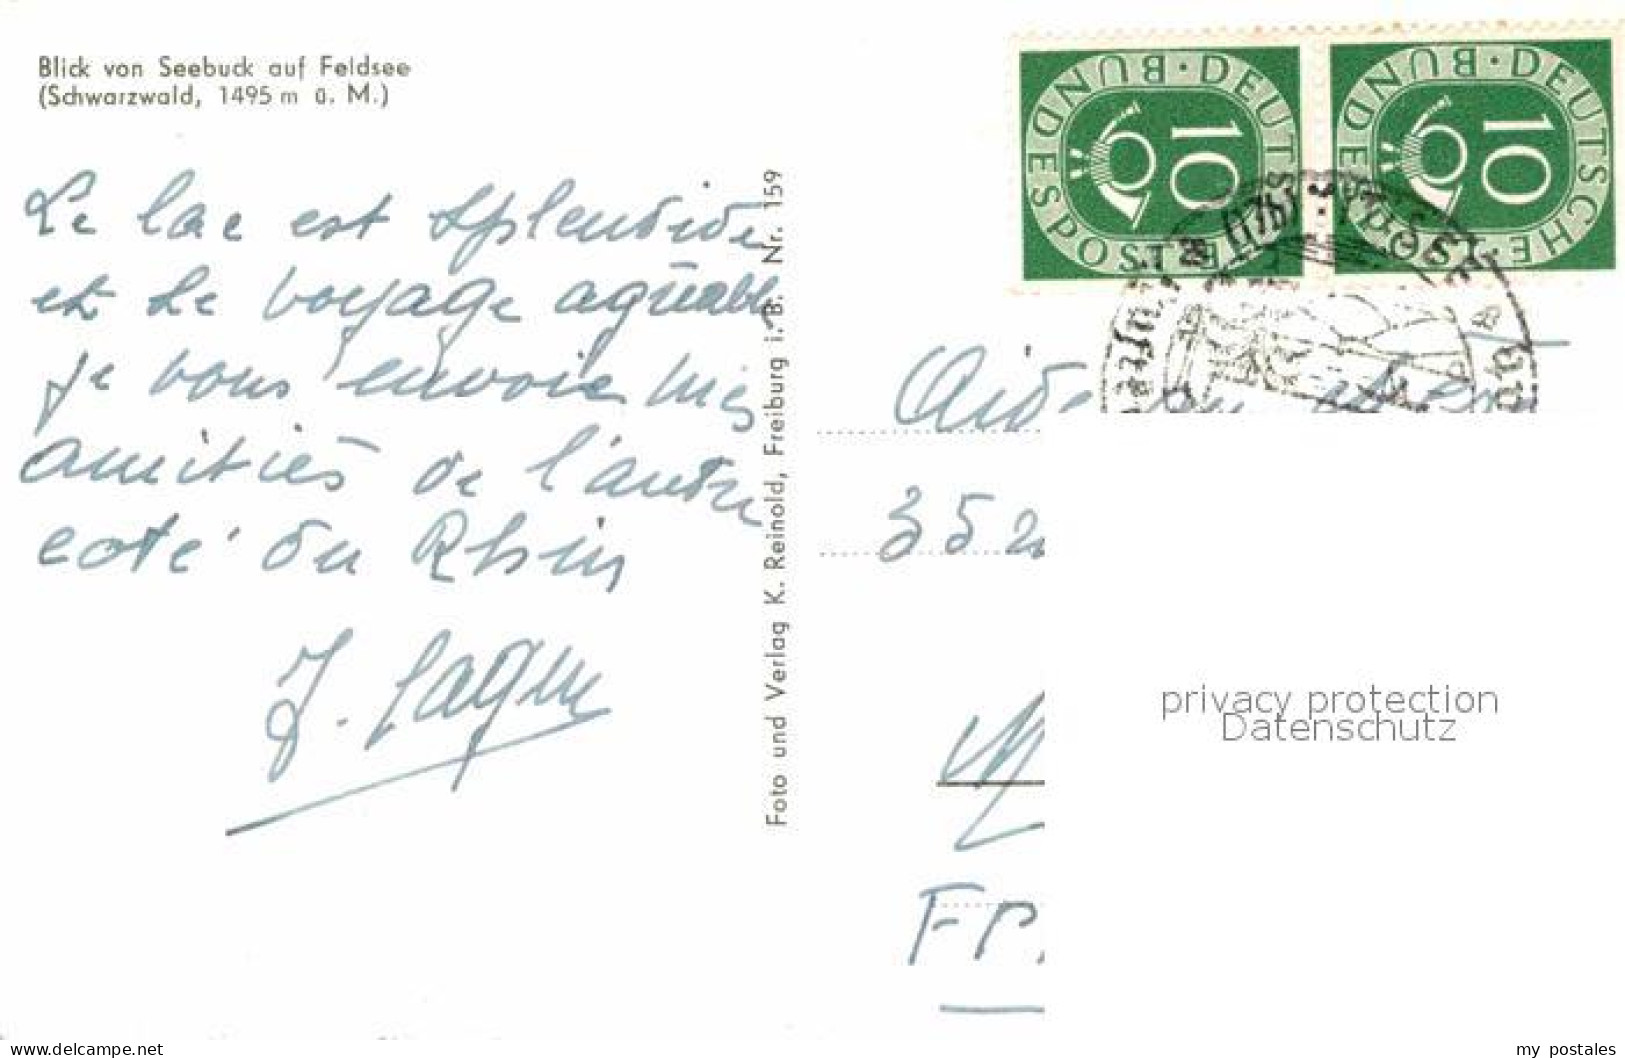 Blick von Seebuck auf Feldsee
(Schwarzwald, 1495 m ü. M.)
Le lac est splendide
et le voyage agréable
je vous envoie mes
amitiés de l'autre
coté du Rhin
Foto und Verlag K. Reinold, Freiburg i. B. Nr. 159
DEUTSCHE BUNDESPOST
10
DEUTSCHE BUNDESPOST
10
35
privacy protection
Datenschutz
delcampe.net
my postales